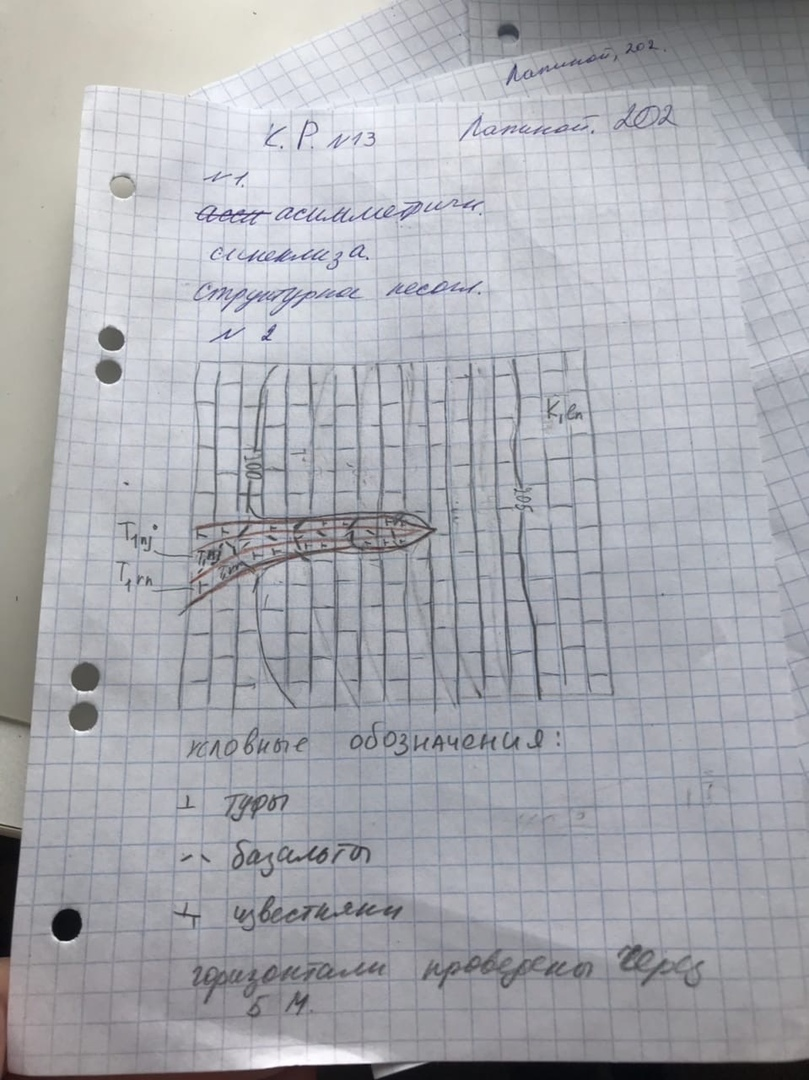 Лапиной, 202.
К. Р. №13 Лапиной. 202
№1.
асимметричн.
синеклиза.
Структурное несогл.
№ 2
K₁ ln
100
205
T₁ nj
T₁ nj
T₁ rn
T₁ rn
условные обозначения:
туфы
базальты
известняки
горизонтали проведены через
5 м.